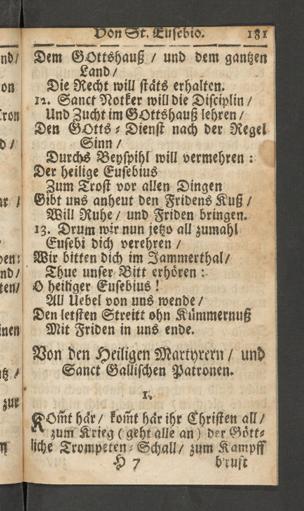 Von St. Eusebio. 181
Dem GOttshauß / und dem gantzen
Land /
Die Recht will stäts erhalten.
12. Sanct Notker will die Disciplin /
Und Zucht im GOttshauß lehren /
Den GOtts-Dienst nach der Regel
Sinn /
Durchs Beyspihl will vermehren:
Der heilige Eusebius
Zum Trost vor allen Dingen
Gibt uns anheut den Fridens Kuß /
Will Ruhe / und Friden bringen.
13. Drum wir nun jetzo all zumahl
Eusebi dich verehren /
Wir bitten dich im Jammerthal /
Thue unser Bitt erhören:
O heiliger Eusebius!
All Uebel von uns wende /
Den letsten Streitt ohn Kümmernuß
Mit Friden in uns ende.
Von den Heiligen Martyrern / und
Sanct Gallischen Patronen.
1.
KOm̃t här / kom̃t här ihr Christen all /
zum Krieg (geht alle an) der Gött-
liche Trompeten-Schall / zum Kampff
H 7 brust